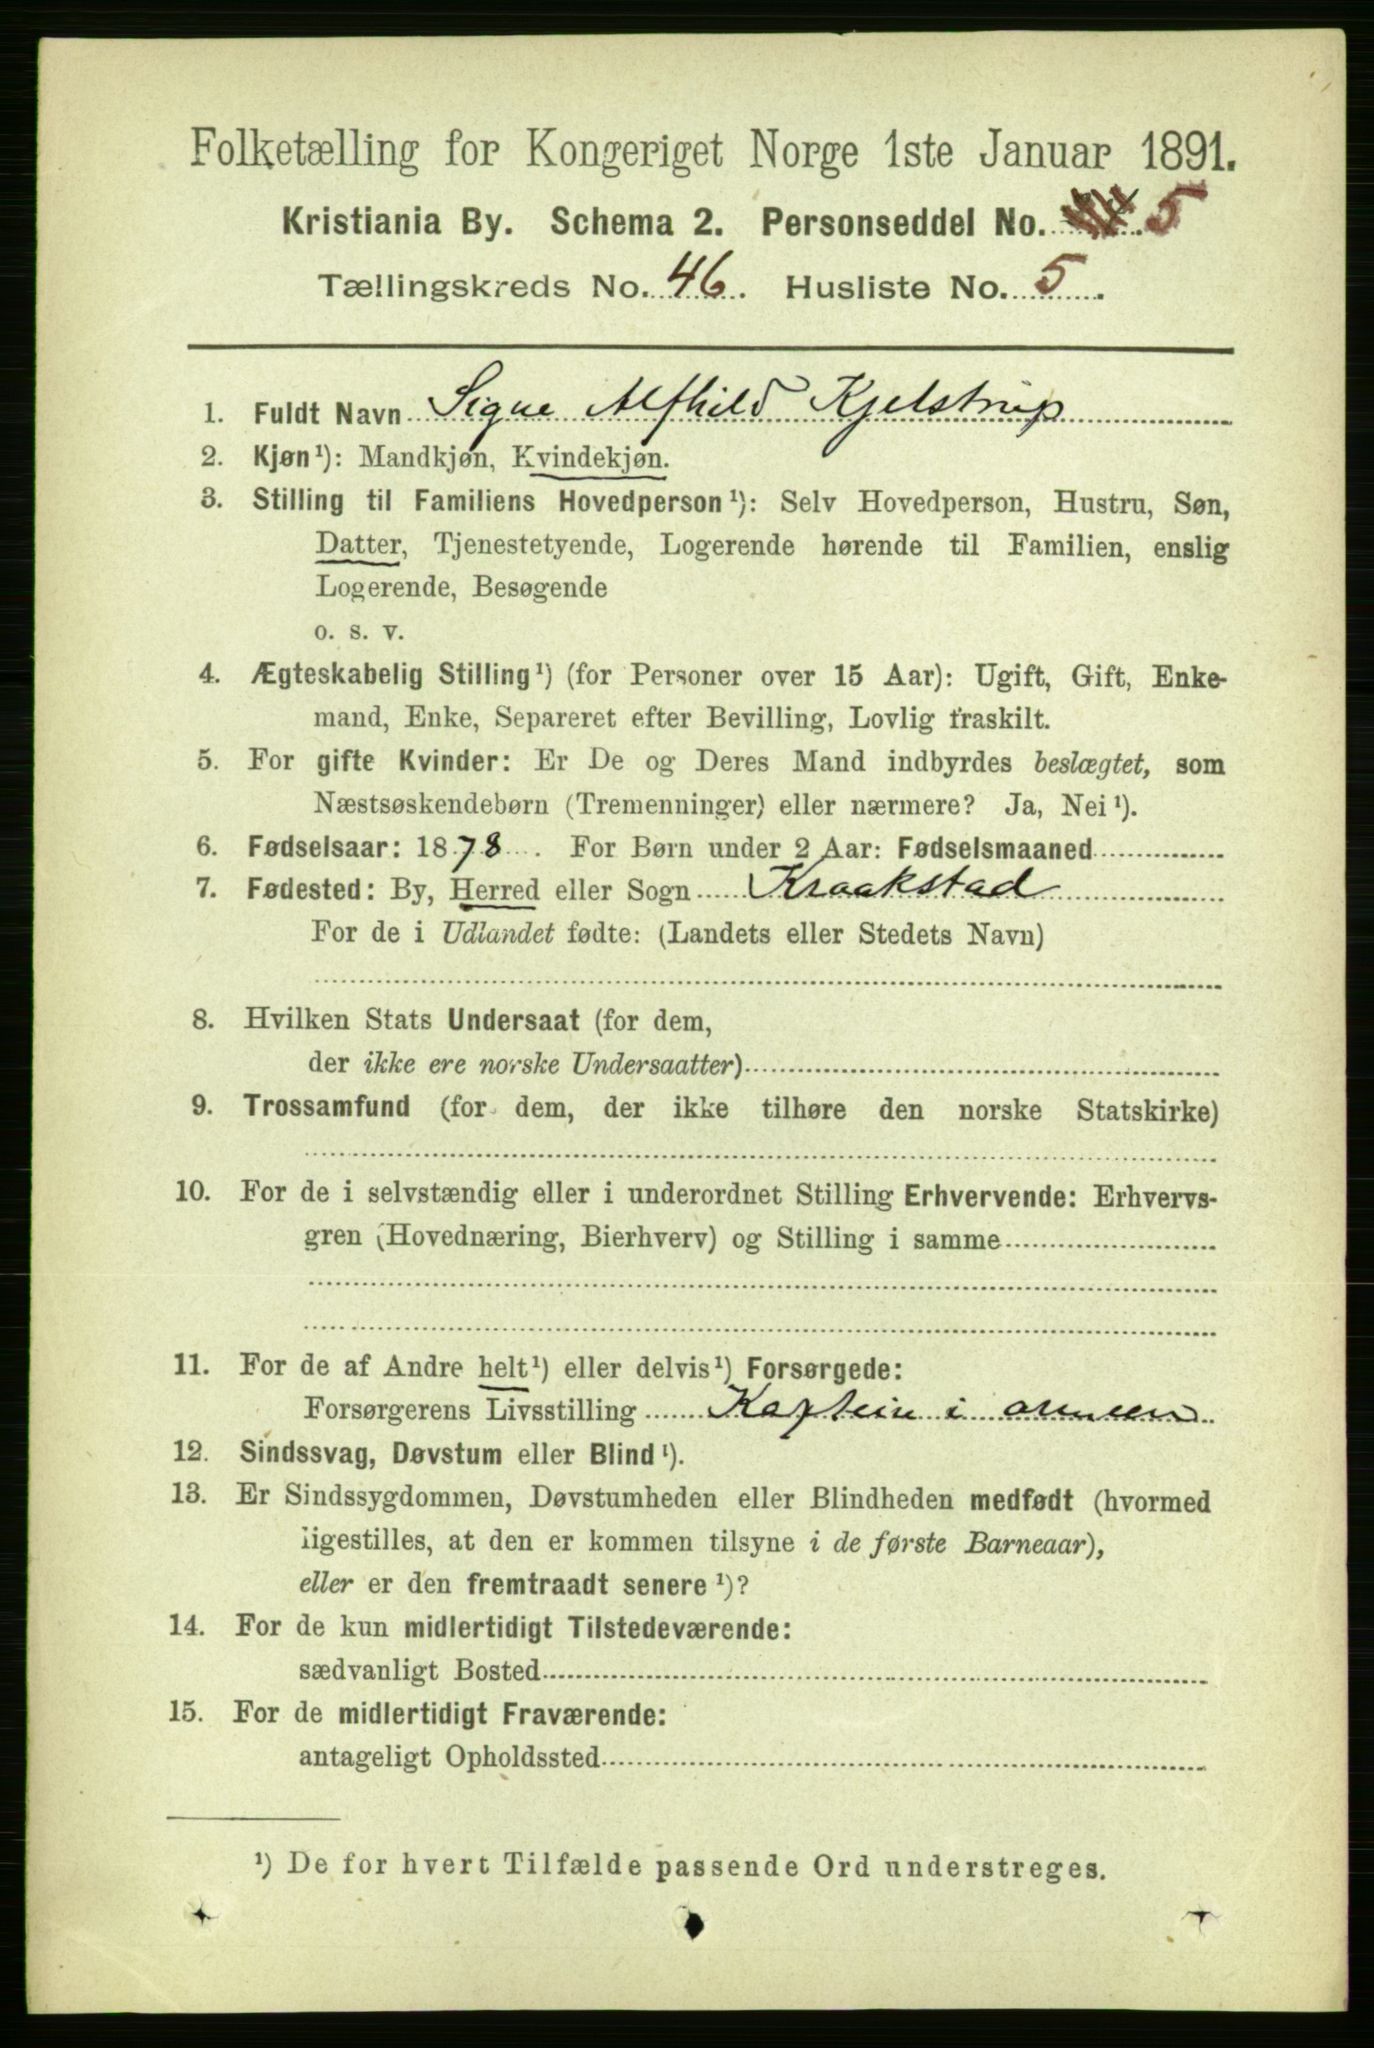 Folketælling for Kongeriget Norge 1ste Januar 1891.
Kristiania By. Schema 2. Personseddel No. 5
Tællingskreds No. 46. Husliste No. 5
1. Fuldt Navn Signe Alfhild Kjelstrup
2. Kjøn¹): Mandkjøn, Kvindekjøn.
3. Stilling til Familiens Hovedperson¹): Selv Hovedperson, Hustru, Søn,
Datter, Tjenestetyende, Logerende hørende til Familien, enslig
Logerende, Besøgende
o. s. v.
4. Ægteskabelig Stilling¹) (for Personer over 15 Aar): Ugift, Gift, Enke-
mand, Enke, Separeret efter Bevilling, Lovlig fraskilt.
5. For gifte Kvinder: Er De og Deres Mand indbyrdes beslægtet, som
Næstsøskendebørn (Tremenninger) eller nærmere? Ja, Nei¹).
6. Fødselsaar: 1878. For Børn under 2 Aar: Fødselsmaaned
7. Fødested: By, Herred eller Sogn Kraakstad
For de i Udlandet fødte: (Landets eller Stedets Navn)
8. Hvilken Stats Undersaat (for dem,
der ikke ere norske Undersaatter)
9. Trossamfund (for dem, der ikke tilhøre den norske Statskirke)
10. For de i selvstændig eller i underordnet Stilling Erhvervende: Erhvervs-
gren (Hovednæring, Bierhverv) og Stilling i samme
11. For de af Andre helt¹) eller delvis¹) Forsørgede:
Forsørgerens Livsstilling Kaptein i armeen
12. Sindssvag, Døvstum eller Blind¹).
13. Er Sindssygdommen, Døvstumheden eller Blindheden medfødt (hvormed
ligestilles, at den er kommen tilsyne i de første Barneaar),
eller er den fremtraadt senere¹)?
14. For de kun midlertidigt Tilstedeværende:
sædvanligt Bosted
15. For de midlertidigt Fraværende:
antageligt Opholdssted
¹) De for hvert Tilfælde passende Ord understreges.